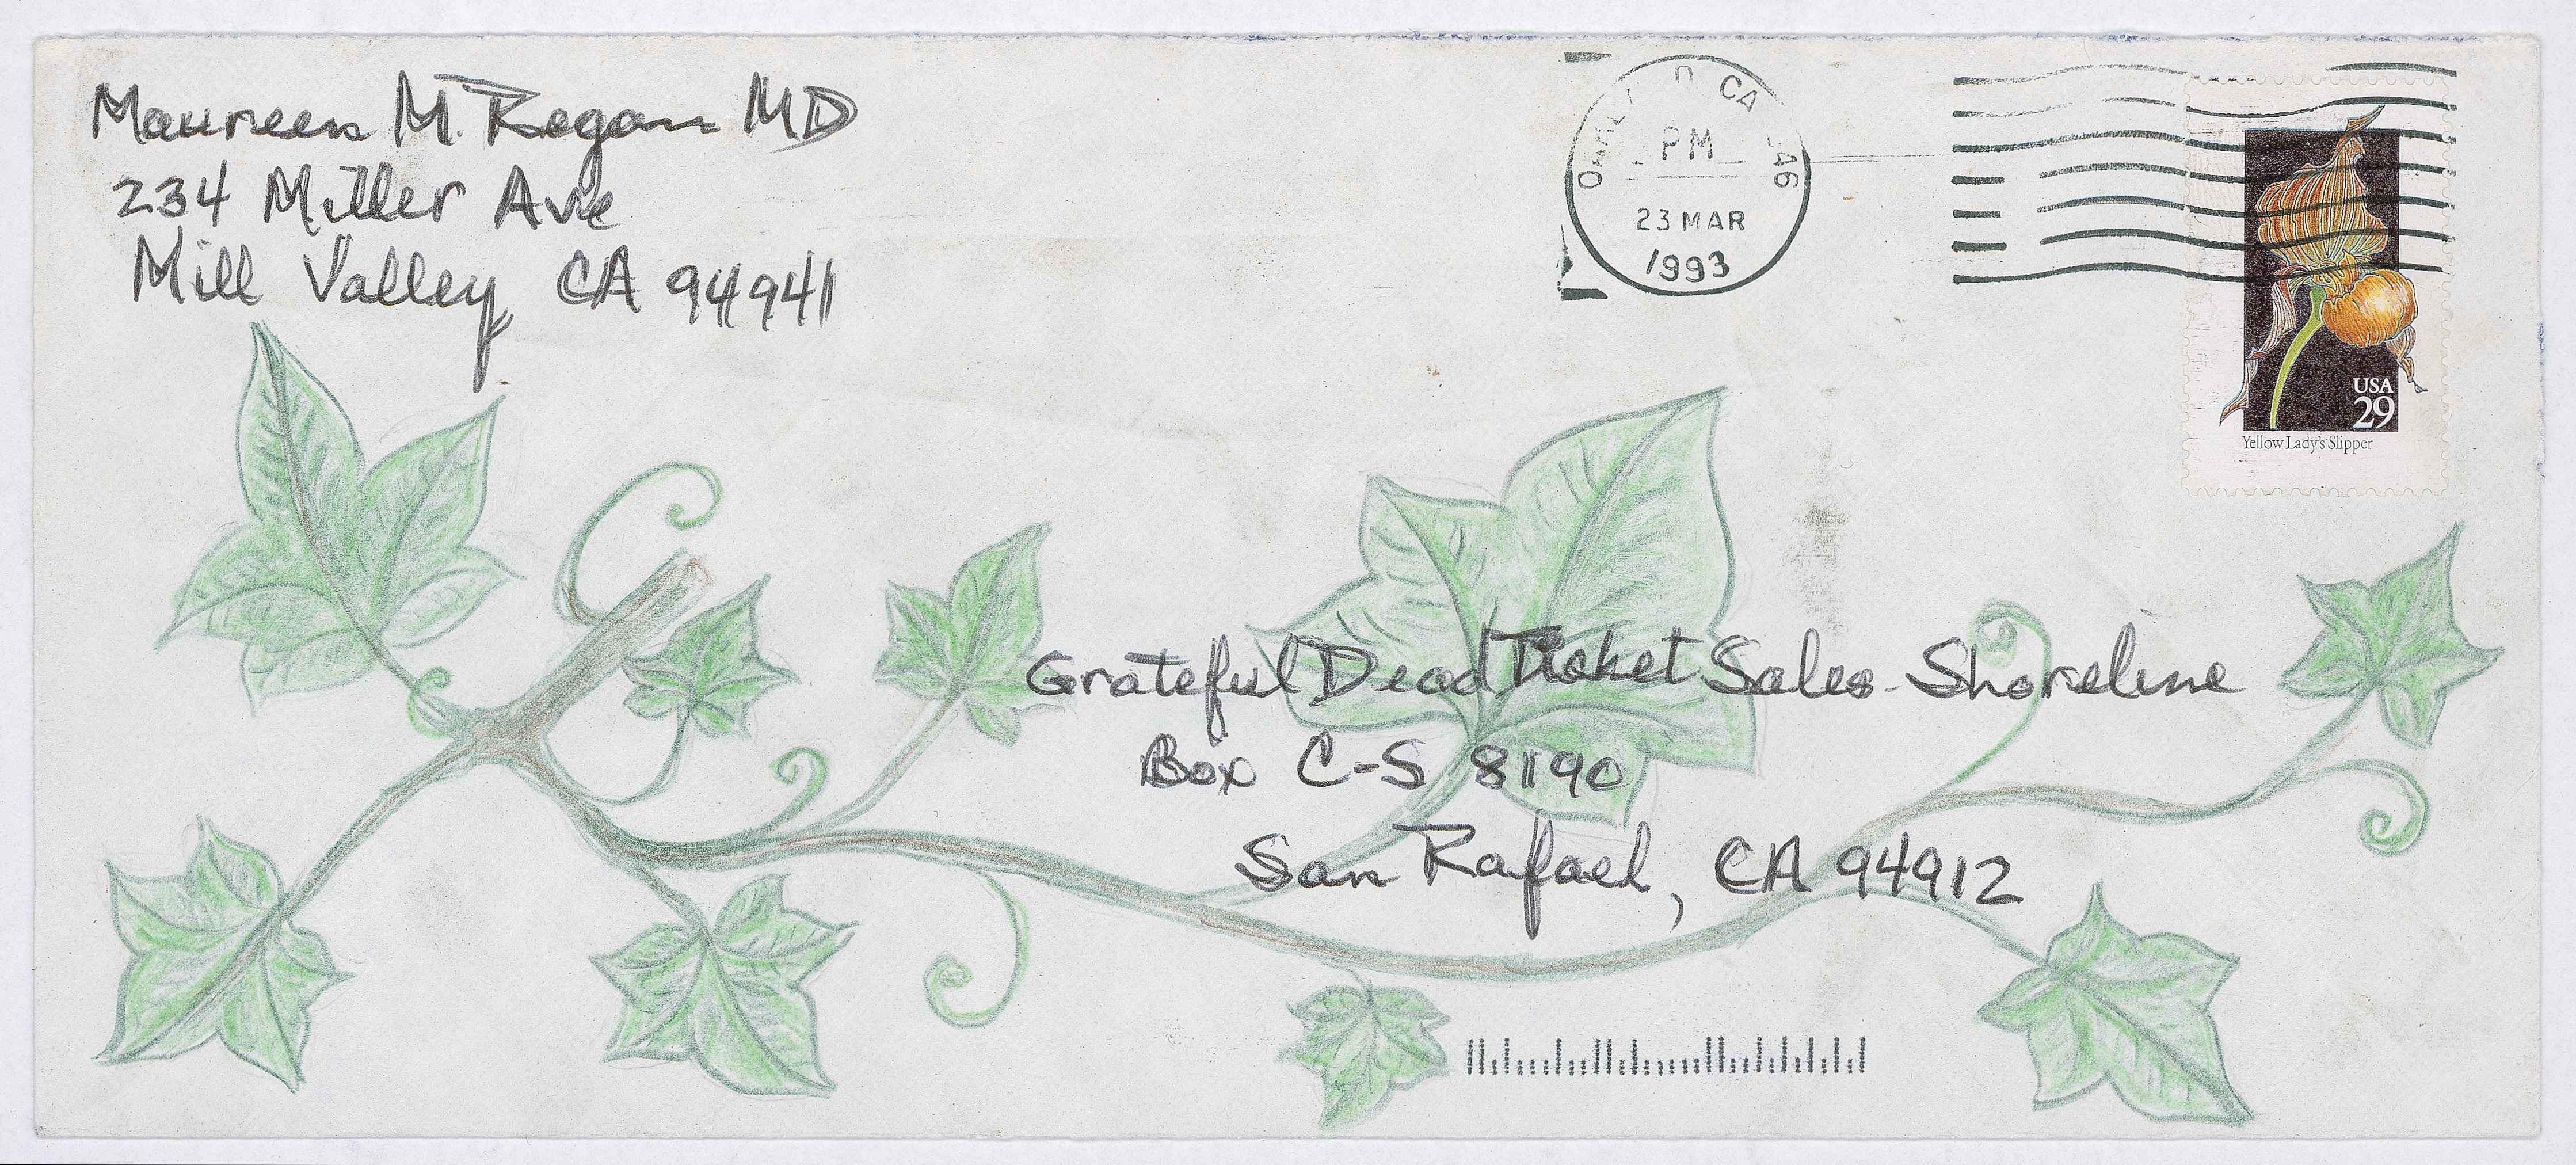 Maureen M. Regan MD
234 Miller Ave
Mill Valley CA 94941
CA
PM
23 MAR
1993
USA
29
Yellow Lady's Slipper
Grateful Dead Ticket Sales - Shoreline
Box C-S 8190
San Rafael, CA 94912